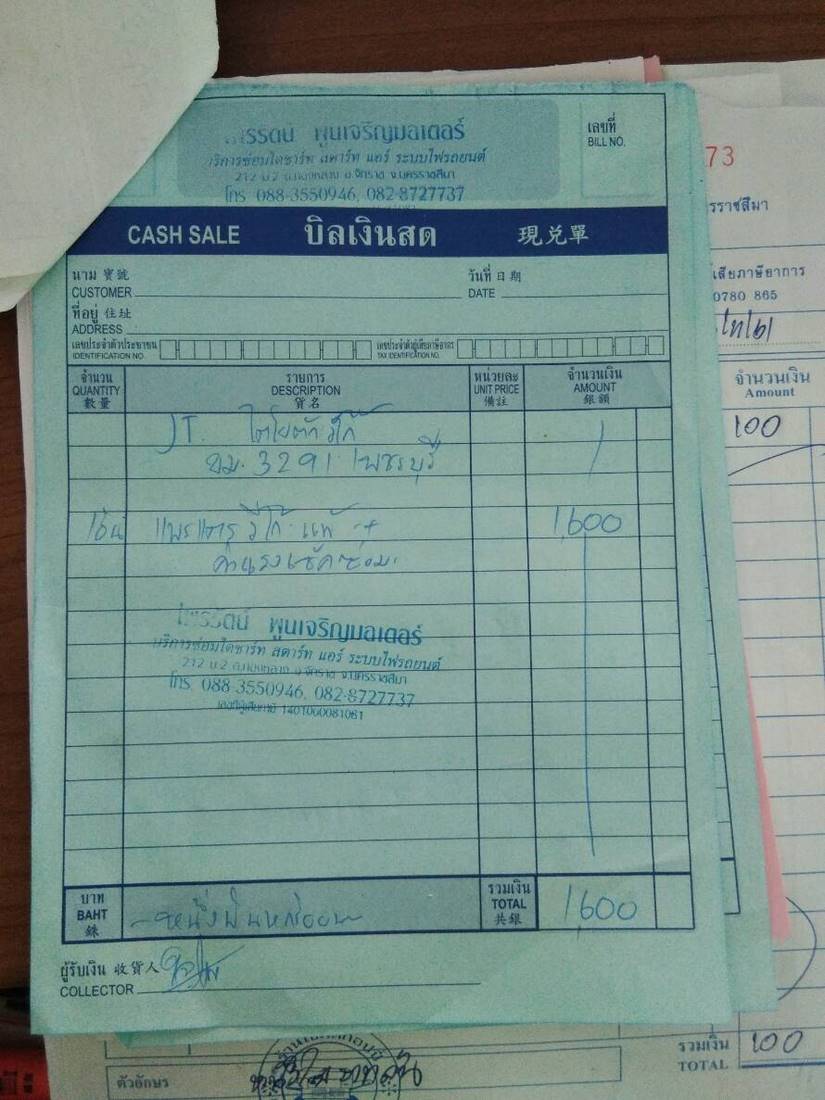 พูนเจริญมอเตอร์
บริการซ่อมไดชาร์ท สตาร์ท แอร์ ระบบไฟรถยนต์
212 ม.2 อ.จักราช จ.นครราชสีมา
โทร. 088-3550946, 082-8727737
เลขที่
BILL NO.
CASH SALE บิลเงินสด 現兌單
นาม 寶號
CUSTOMER
วันที่ 日期
DATE
ที่อยู่ 住址
ADDRESS
เลขประจำตัวประชาชน
IDENTIFICATION NO.
เลขประจำตัวผู้เสียภาษีอากร
TAX IDENTIFICATION NO.
จำนวน
QUANTITY
數量
รายการ
DESCRIPTION
貨名
หน่วยละ
UNIT PRICE
備註
จำนวนเงิน
AMOUNT
銀額
JT. โตโยต้า วีโก้
3291 เพชรบุรี
วีโก้ แท้ + 1,600
ค่าแรงเช็คซ่อม
พูนเจริญมอเตอร์
บริการซ่อมไดชาร์ท สตาร์ท แอร์ ระบบไฟรถยนต์
212 ม.2 อ.จักราช จ.นครราชสีมา
โทร. 088-3550946, 082-8727737
เลขที่ผู้เสียภาษี 1401000081061
บาท
BAHT
銖
หนึ่งพันหกร้อย
รวมเงิน
TOTAL
共銀
1,600
ผู้รับเงิน 收貨人
COLLECTOR
73
รราชสีมา
เสียภาษีอาการ
0780 865
จำนวนเงิน
Amount
100
รวมเงิน
TOTAL
100
ตัวอักษร